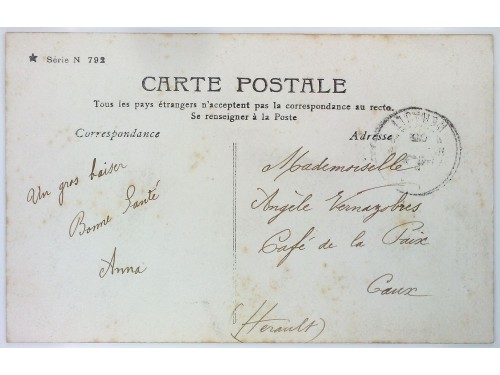 ★ Série N 792
CARTE POSTALE
Tous les pays étrangers n'acceptent pas la correspondance au recto.
Se renseigner à la Poste
Correspondance
Adresse
Un gros baiser
Bonne Santé
Anna
Mademoiselle
Angèle Vernazobres
Café de la Paix
Caux
(Herault)